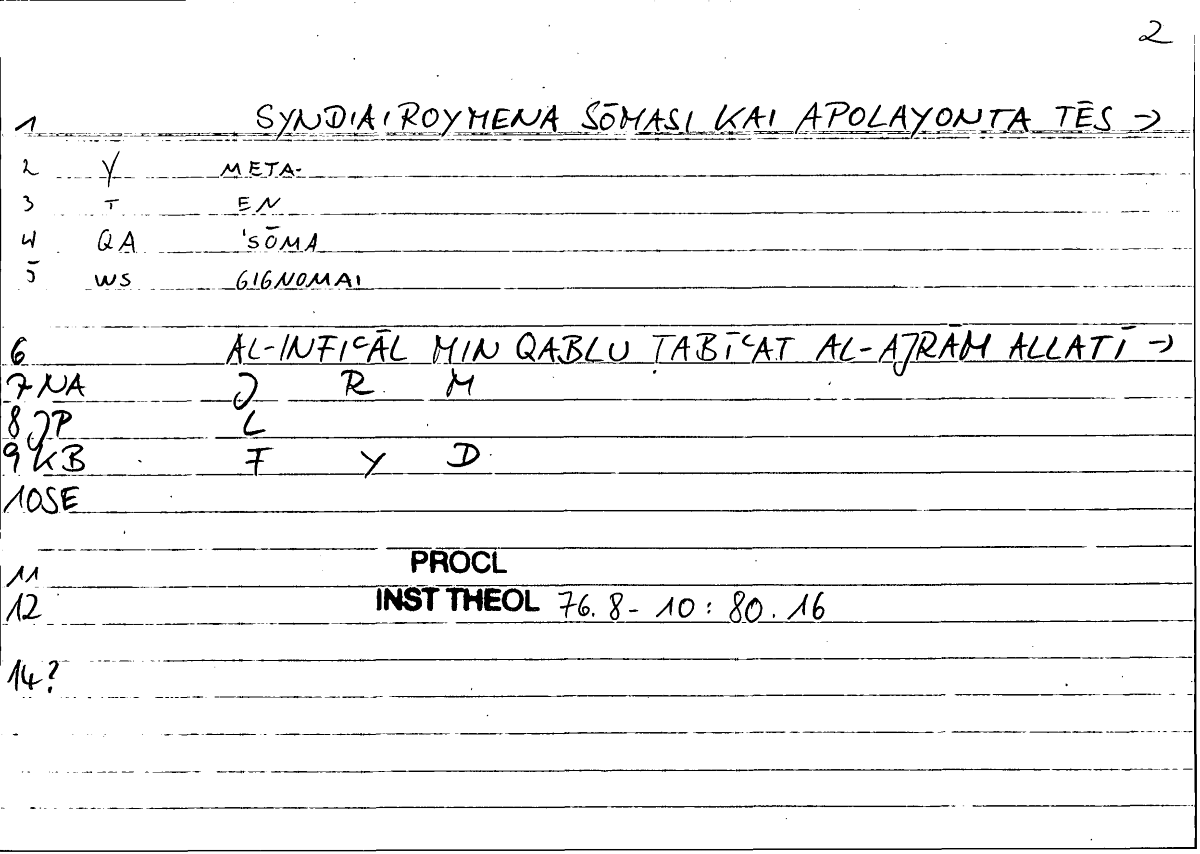 2
1 SYNDIAIROYMENA SŌMASI KAI APOLAYONTA TĒS →
2 Y META-
3 T EN
4 QA 'SŌMA
5 WS GIGNOMAI
6 AL-INFIʿĀL MIN QABLU ṬABĪʿAT AL-AJRĀM ALLATĪ →
7 NA J R M
8 JP L
9 KB F Y D
10 SE
11 PROCL
12 INST THEOL 76.8-10:80.16
14?